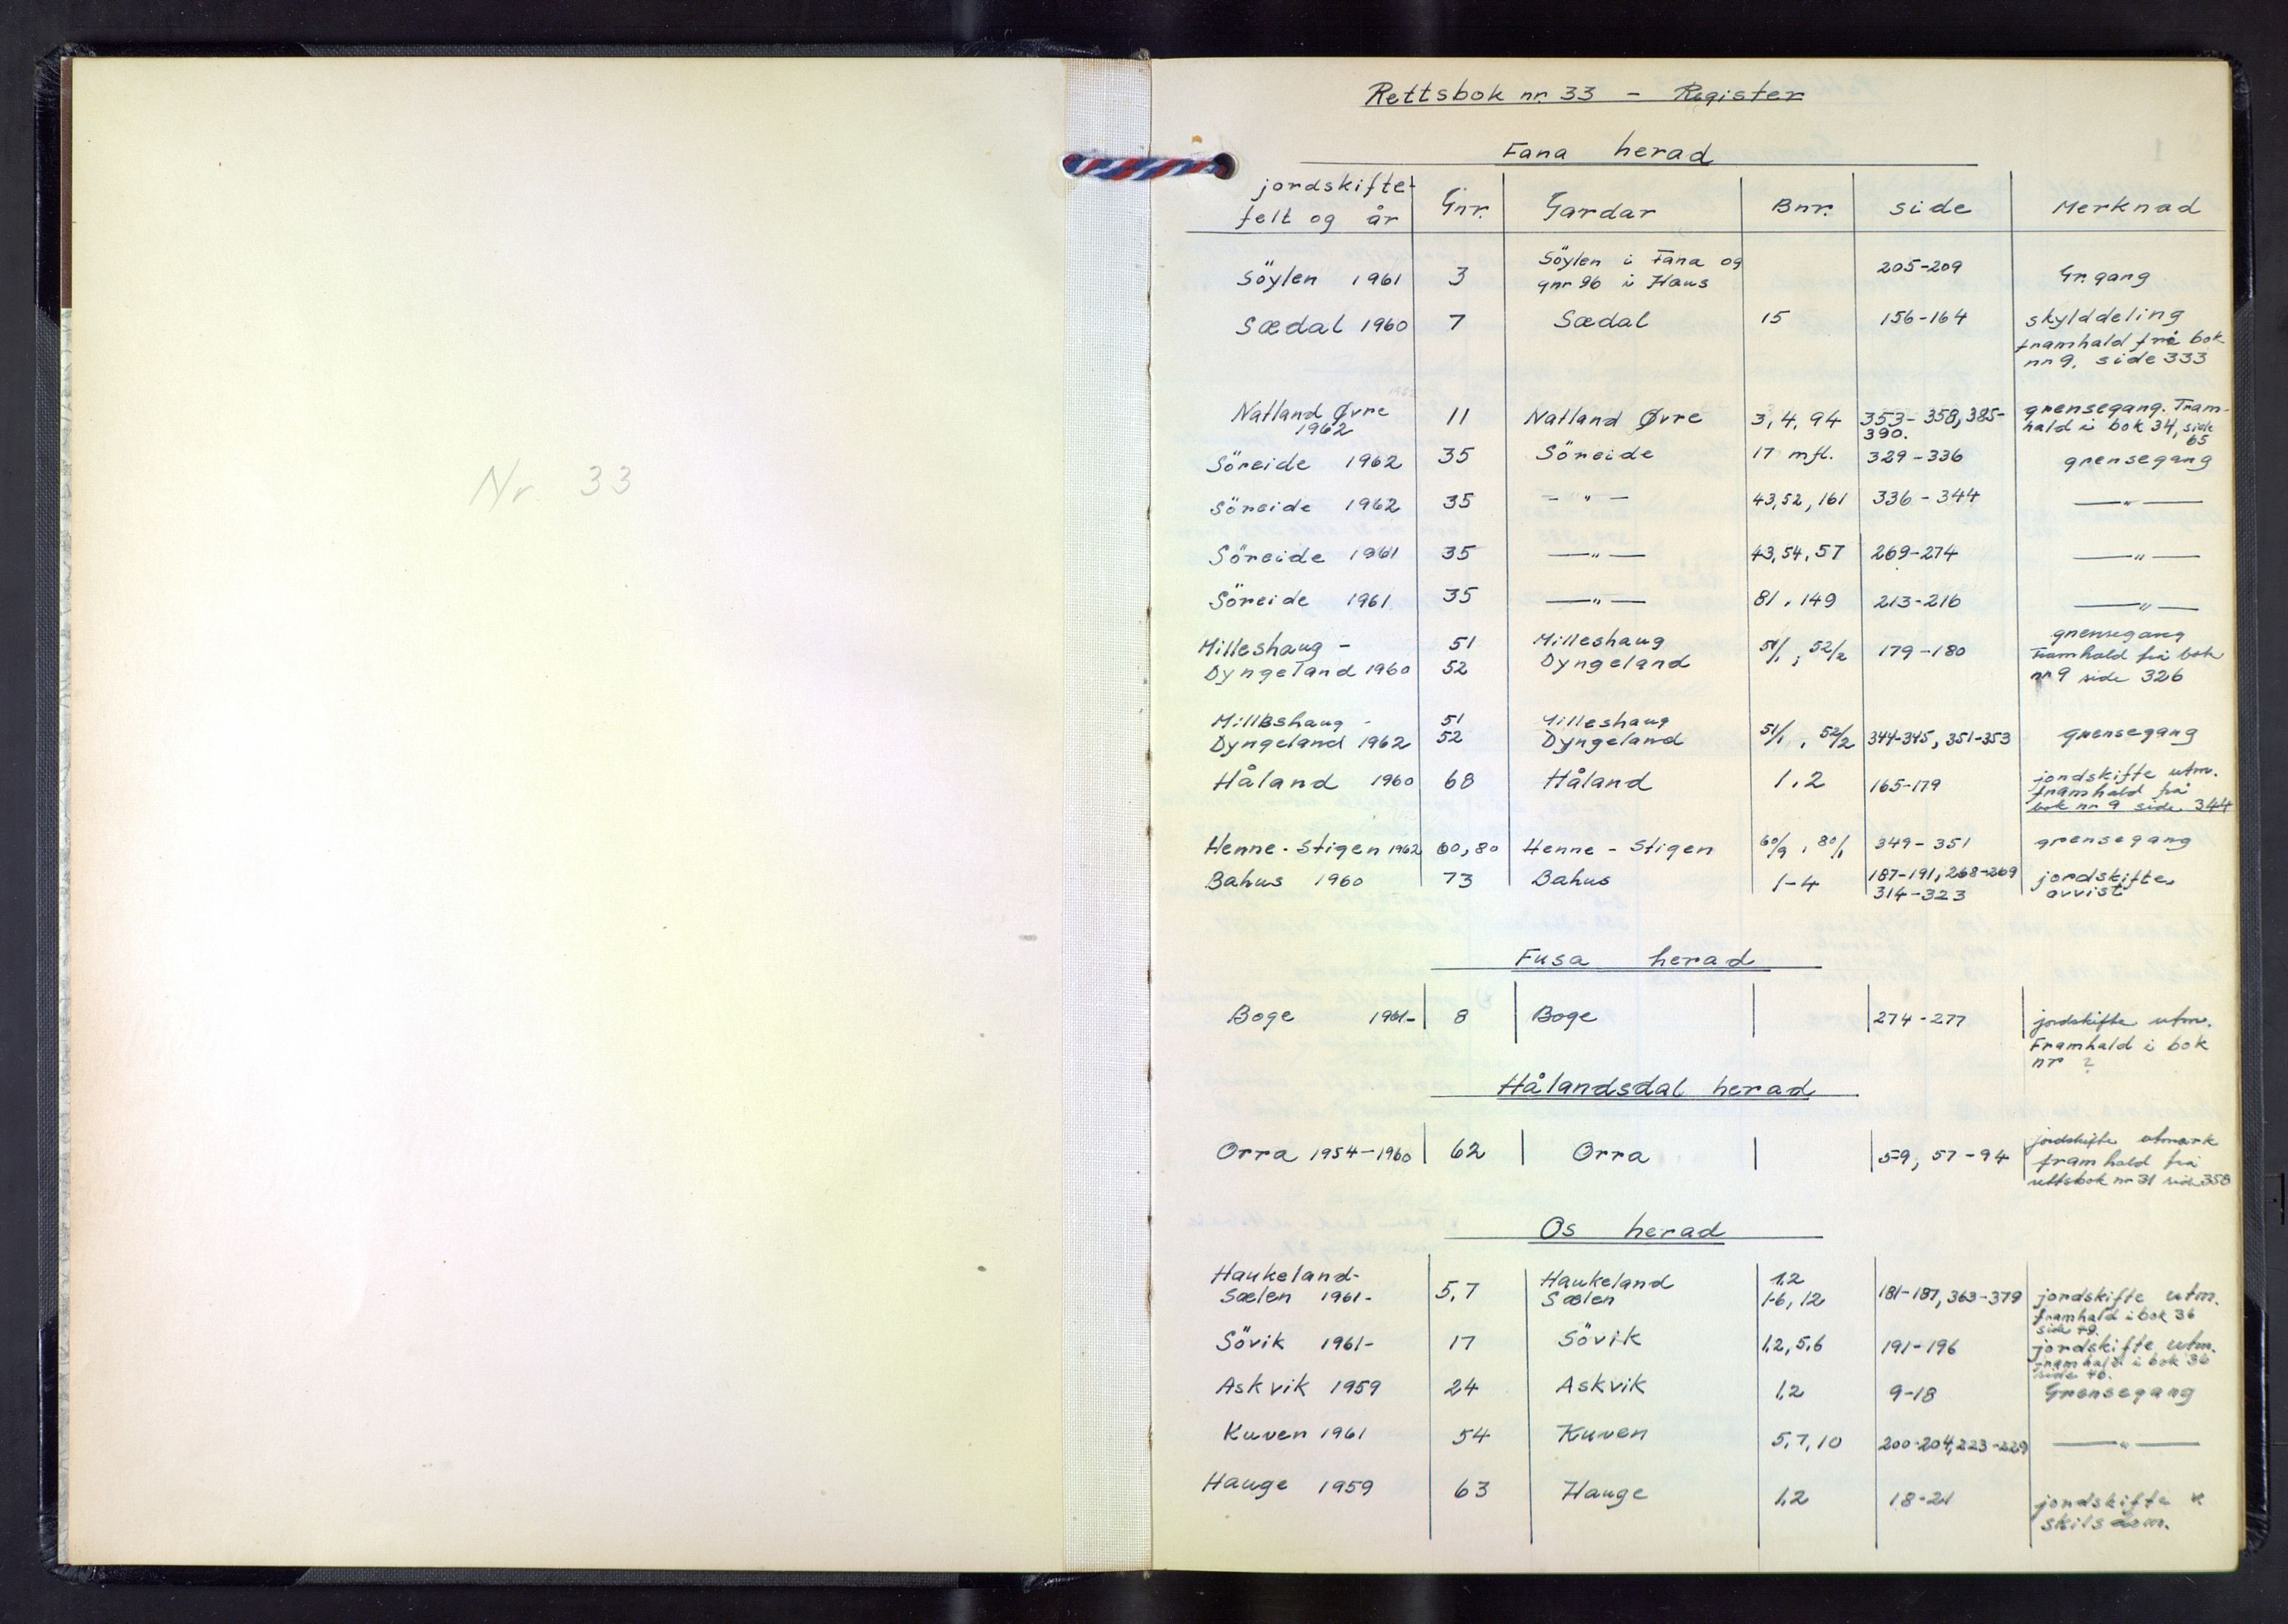 Nr. 33
Rettsbok nr. 33 - Register
Fana herad
jordskifte- felt og år | Gnr. | Gardar | Bnr. | side | Merknad
Söylen 1961 | 3 | Söylen i Fana og gnr 96 i Haus | | 205-209 | Gr.gang
Sædal 1960 | 7 | Sædal | 15 | 156-164 | skylddeling framhald frå bok nr 9. side 333
Natland Øvre 1962 | 11 | Natland Øvre | 3, 4, 94 | 353-358, 385-390. | grensegang. Framhald i bok 34, side 65
Söreide 1962 | 35 | Söreide | 17 mfl. | 329-336 | grensegang
Söreide 1962 | 35 | - " - | 43, 52, 161 | 336-344 | - " -
Söreide 1961 | 35 | - " - | 43, 54, 57 | 269-274 | - " -
Söreide 1961 | 35 | - " - | 81, 149 | 213-216 | - " -
Milleshaug - | 51 | Milleshaug | 51/1, 52/2 | 179-180 | grensegang
Dyngeland 1960 | 52 | Dyngeland | | | Framhald frå bok nr 9 side 326
Milleshaug - | 51 | Milleshaug | 51/1, 52/2 | 344-345, 351-353 | grensegang
Dyngeland 1962 | 52 | Dyngeland
Håland 1960 | 68 | Håland | 1, 2 | 165-179 | jordskifte utm. framhald frå bok nr 9 side 344
Henne-Stigen 1962 | 60, 80 | Henne - Stigen | 60/9, 80/1 | 349-351 | grensegang
Bahus 1960 | 73 | Bahus | 1-4 | 187-191, 268-269 314-323 | jordskifte. avvist
Fusa herad
Boge 1961- | 8 | Boge | | 274-277 | jordskifte utm. Framhald i bok nr ?
Hålandsdal herad
Orra 1954-1960 | 62 | Orra | | 59, 57-94 | jordskifte utmark framhald frå rettsbok nr 31 side 358
Os herad
Haukeland- | 5, 7 | Haukeland | 1,2 | 181-187, 363-379 | jordskifte utm.
Sælen 1961- | | Sælen | 1-6, 12 | | framhald i bok 36 side 79.
Sövik 1961- | 17 | Sövik | 1,2, 5,6 | 191-196 | jordskifte utm. framhald i bok 36 side
Askvik 1959 | 24 | Askvik | 1,2 | 9-18 | Grensegang
Kuven 1961 | 54 | Kuven | 5, 7, 10 | 200-204, 223-229 | - " -
Hauge 1959 | 63 | Hauge | 1,2 | 18-21 | jordskifte skilsdom.